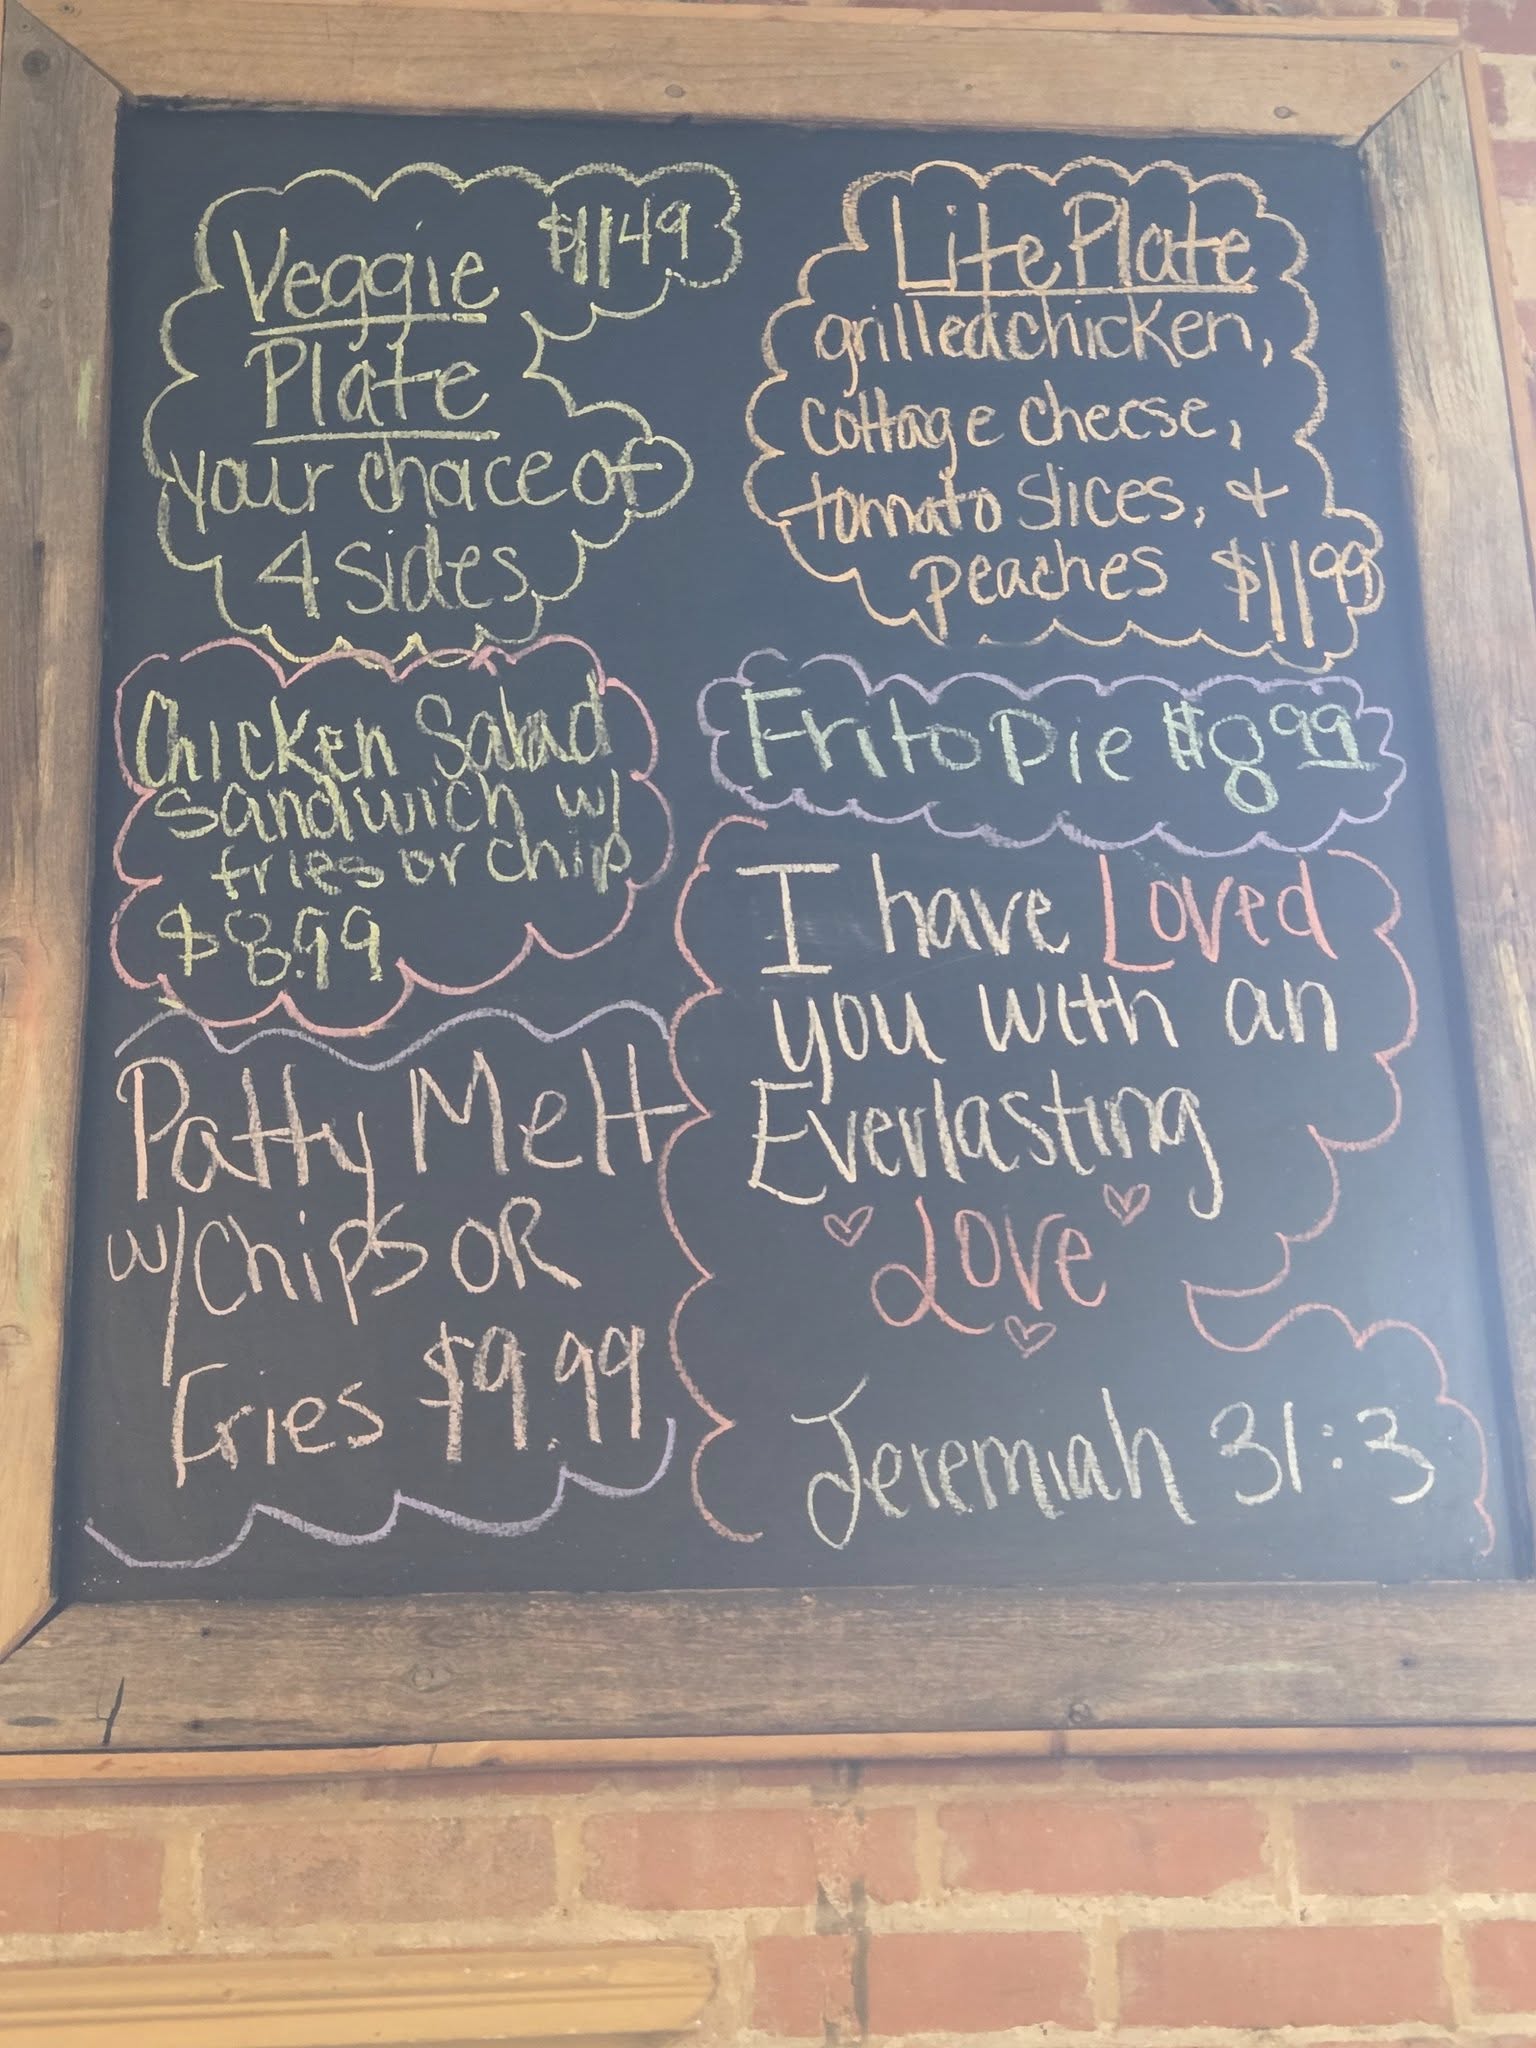 Veggie $11.49
Plate
your choice of
4 sides
Lite Plate
grilled chicken,
cottage cheese,
tomato slices, +
peaches $11.99
Chicken Salad
sandwich w/
fries or chip
$8.99
Frito Pie $8.99
Patty Melt
w/Chips OR
Fries $9.99
I have Loved
you with an
Everlasting
Love
Jeremiah 31:3